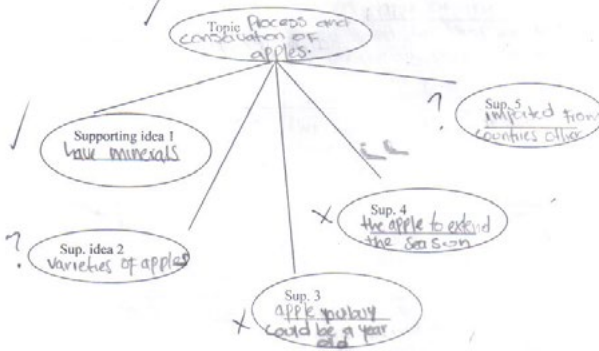 Topic Process and
conservation of
apples.
Supporting idea 1
have minerals
Sup. idea 2
varieties of apples
Sup. 3
apple you buy
could be a year
old
Sup. 4
the apple to extend
the season
Sup. 5
imported from
countries other